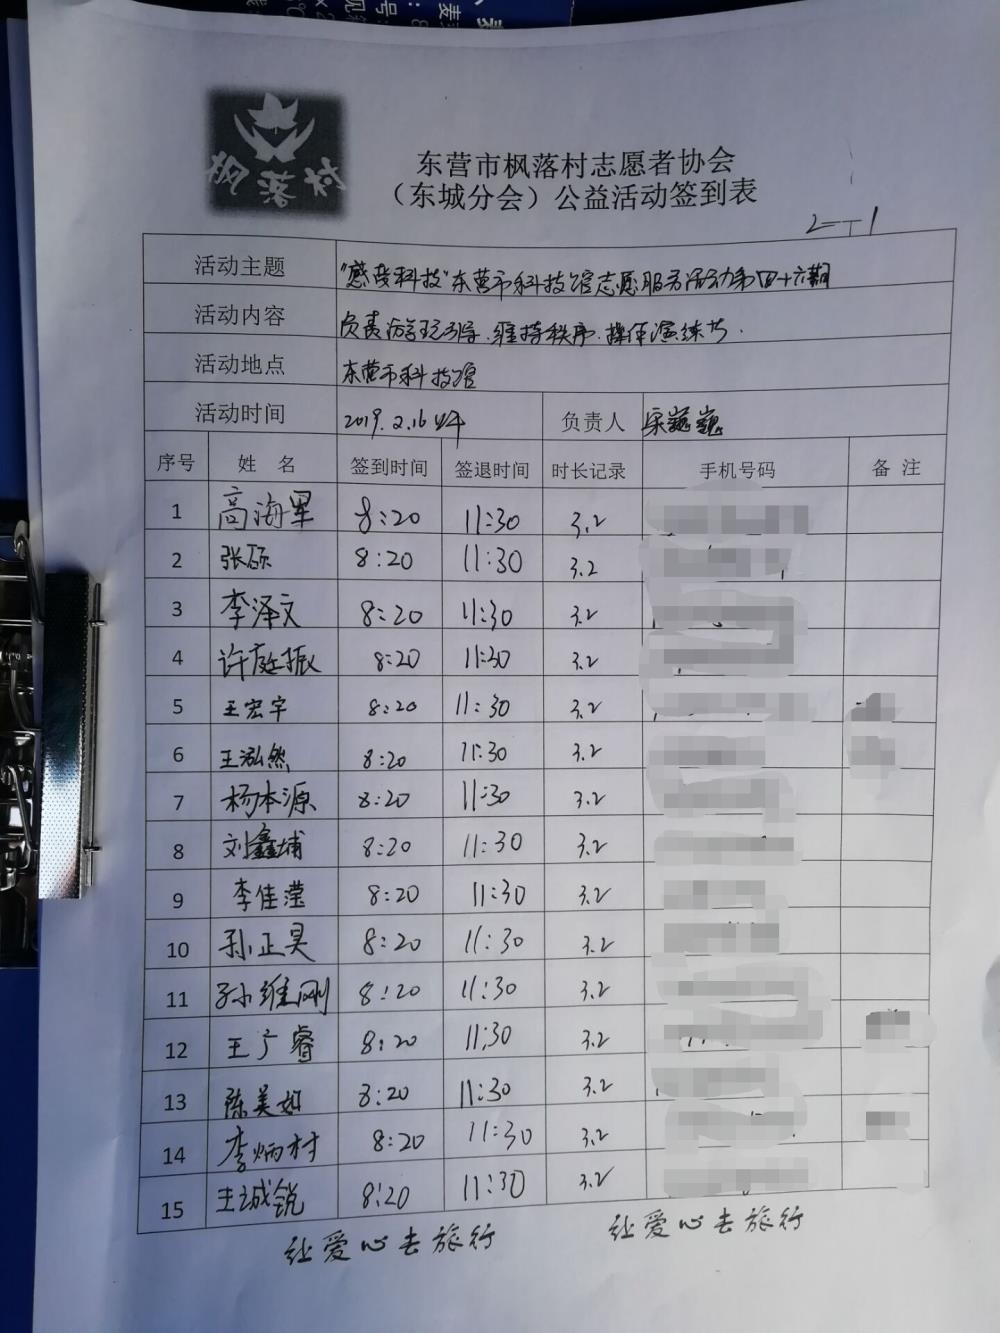 枫落村
东营市枫落村志愿者协会
（东城分会）公益活动签到表
2-1
活动主题 "感受科技"东营市科技馆志愿服务活动第四十六期
活动内容 负责游玩引导.维持秩序.操作演练等.
活动地点 东营市科技馆
活动时间 2019.2.16上午 负责人 宋巍巍
序号 姓 名 签到时间 签退时间 时长记录 手机号码 备 注
1 高海军 8:20 11:30 3.2
2 张硕 8:20 11:30 3.2
3 李泽文 8:20 11:30 3.2
4 许庭振 8:20 11:30 3.2
5 王宏宇 8:20 11:30 3.2
6 王泓然 8:20 11:30 3.2
7 杨本源 8:20 11:30 3.2
8 刘鑫埔 8:20 11:30 3.2
9 李佳滢 8:20 11:30 3.2
10 孙正昊 8:20 11:30 3.2
11 孙维刚 8:20 11:30 3.2
12 王广睿 8:20 11:30 3.2
13 陈美如 8:20 11:30 3.2
14 李炳村 8:20 11:30 3.2
15 王诚锐 8:20 11:30 3.2
让爱心去旅行 让爱心去旅行